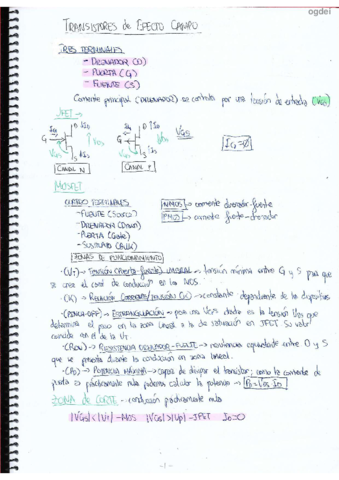 ogdel
TRANSISTORES de EFECTO CAMPO
TRES TERMINALES
- DRENADOR (D)
- PUERTA (G)
- FUENTE (S)
Corriente principal (DRENADOR) se controla por una tensión de entrada (VGS)
JFET →
VGS
IG=0
CANAL N
CANAL P
MOSFET
CUATRO TERMINALES
- FUENTE (Source)
- DRENADOR (Drain)
- PUERTA (Gate)
- SUSTRATO (Bulk)
NMOS → corriente drenador-fuente
PMOS → corriente fuente-drenador
ZONAS DE FUNCIONAMIENTO
- (VT) → TENSIÓN (Puerta-fuente) UMBRAL - tensión mínima entre G y S para que
se cree el canal de conducción en los MOS.
- (K) → RELACIÓN CORRIENTE/TENSIÓN (K) → constante dependiente de los dispositivos
- (PINCH-OFF) → ESTRANGULACIÓN - para una VGS dada es la tensión VDS que
determina el paso en la zona lineal a la de saturación en JFET. Su valor
coincide en el de la VT
- (RON) → RESISTENCIA DRENADOR-FUENTE → resistencia equivalente entre D y S
que se presenta durante la conducción en zona lineal.
- (PD) → POTENCIA MÁXIMA → capaz de disipar el transistor; como la corriente de
puerta es prácticamente nula podemos calcular la potencia → PD=VDS ID
ZONA DE CORTE - conducción prácticamente nula
|VGS|<|VT| - MOS |VGS|>|VP| - JFET ID=0
- 1 -